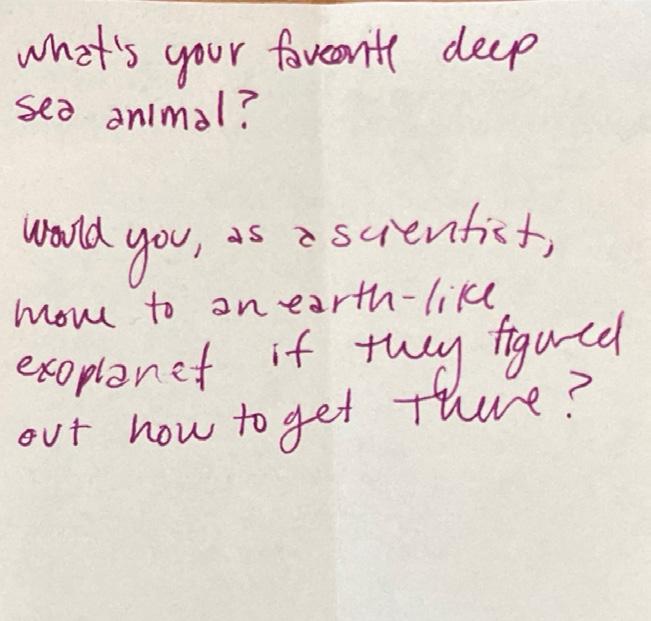 what's your favorite deep
sea animal?
would you, as a scientist,
move to an earth-like
exoplanet if they figured
out how to get there?